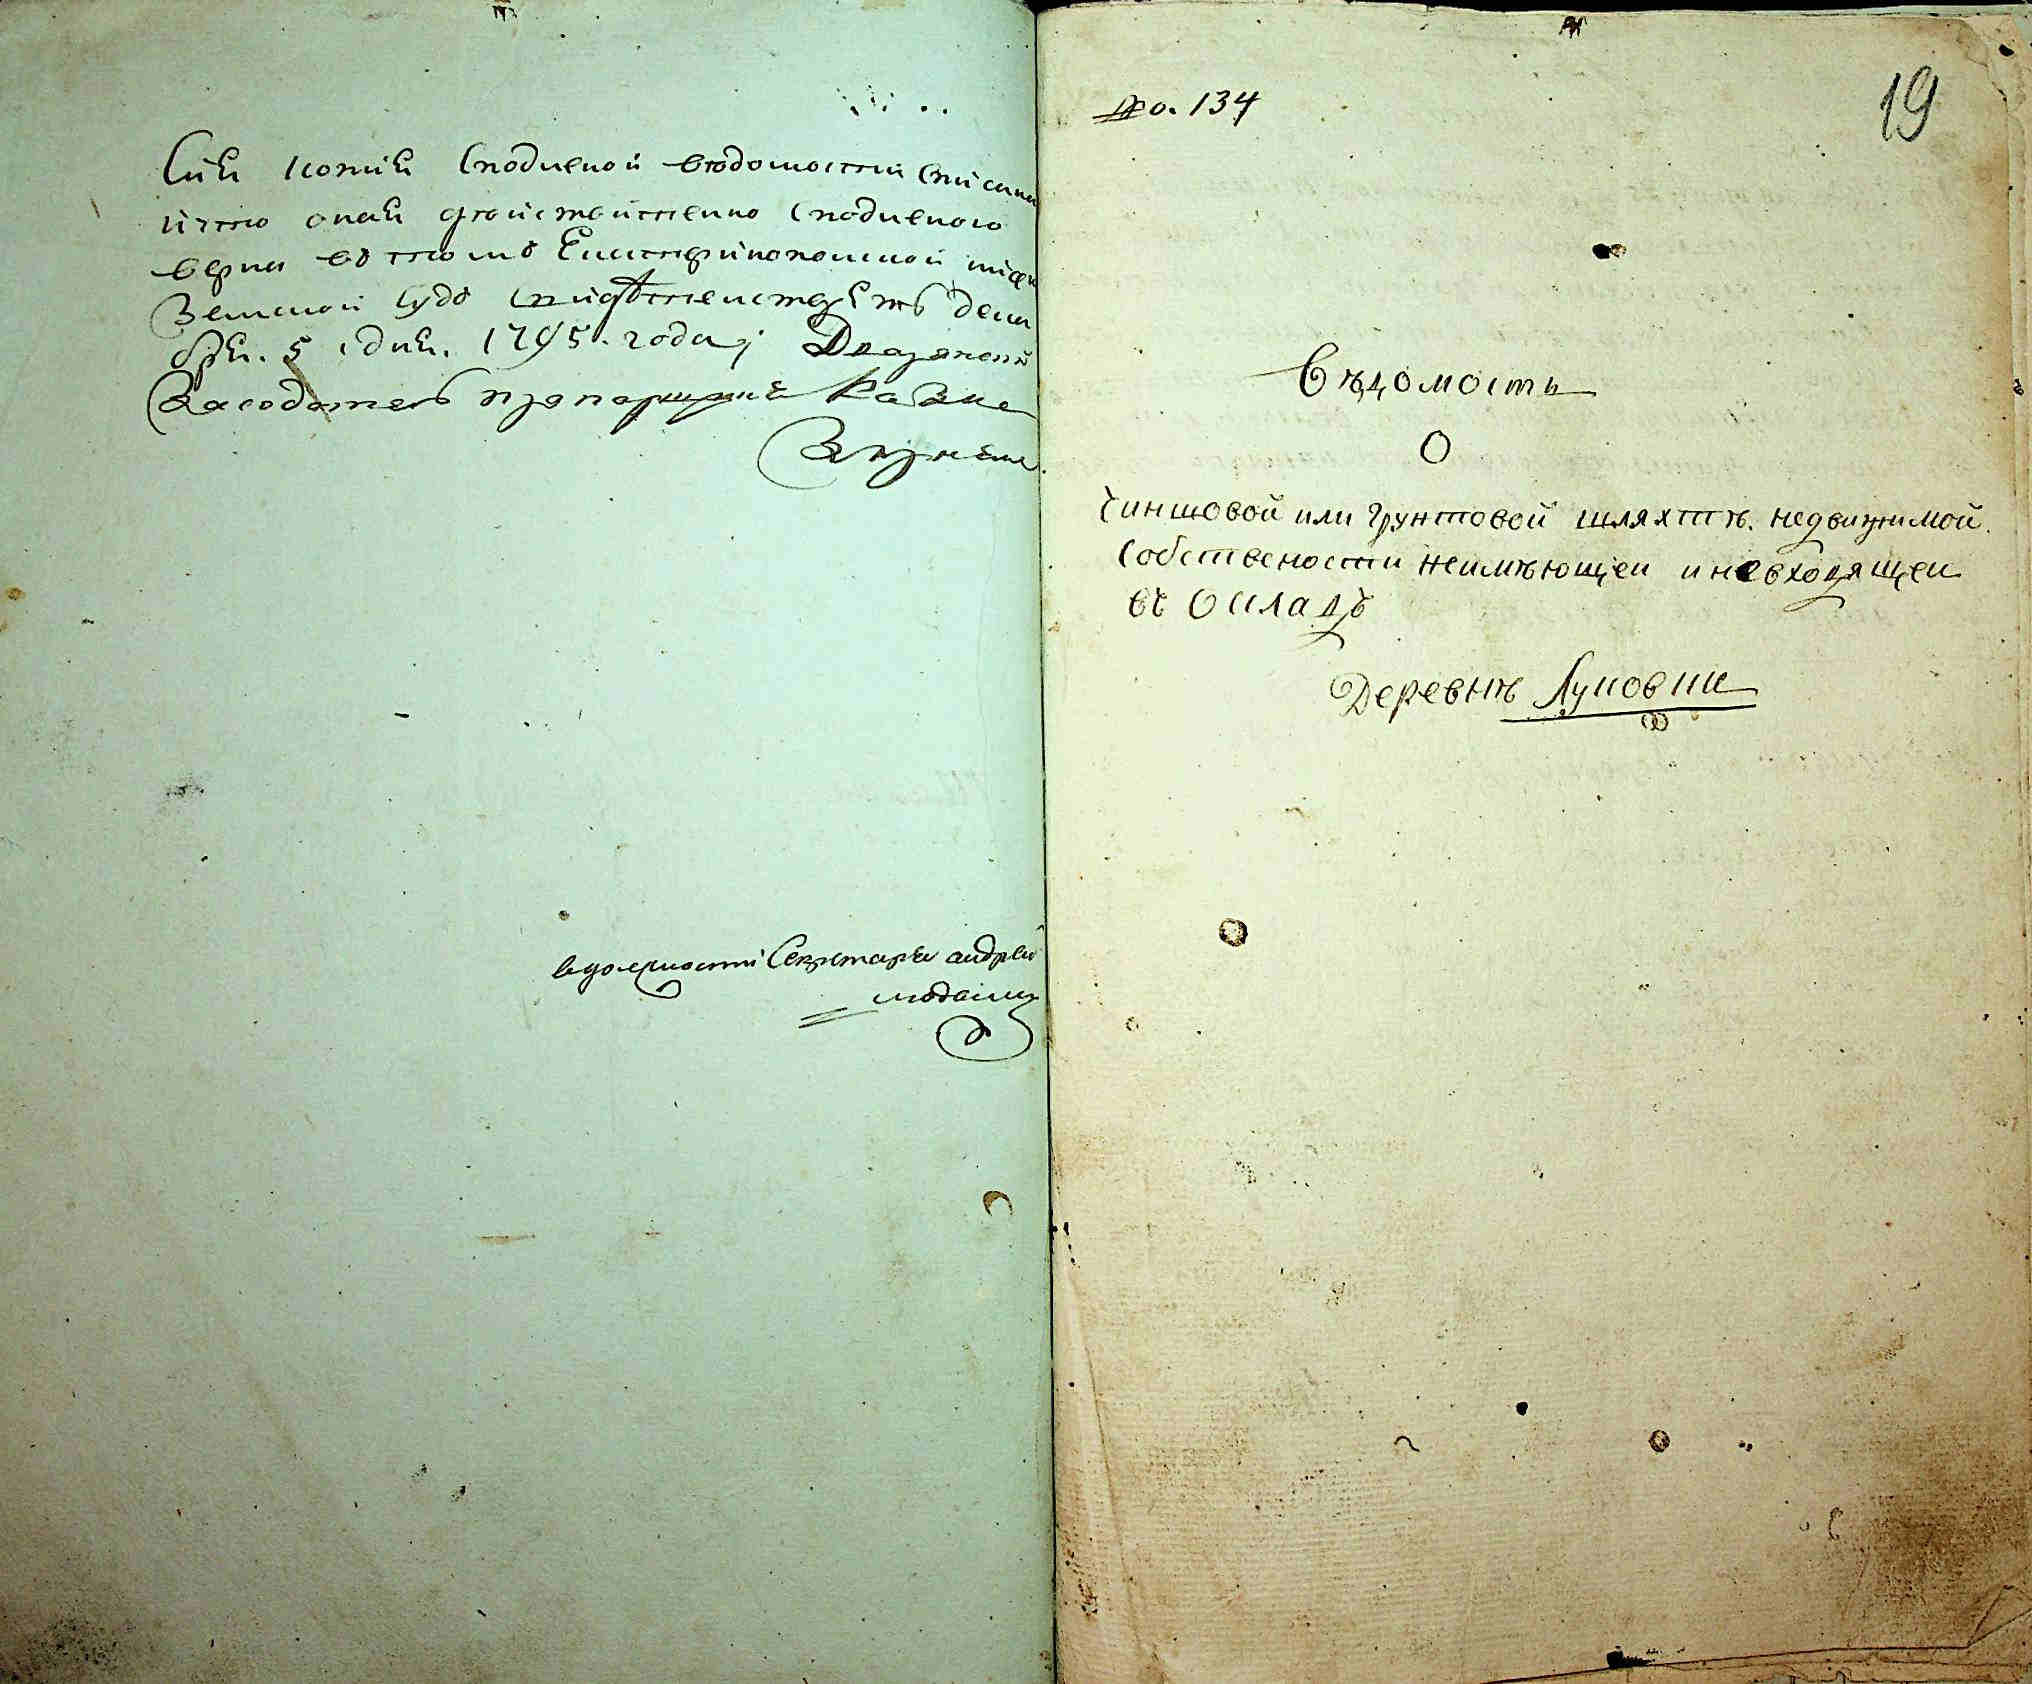 Сия копия сподленой ведомости списана
ичто оная действително сподленою
верна въ томъ Екатеринопольской нижн
Земской судъ свидетелствуетъ дека
бря. 5 дня. 1795. года; Дворянской
Заседатель прапорщикъ
вдолжности Секретаря андрей
№ 134
19
Вѣдомость
О
чиншовой или грунтовой шляхтѣ. недвижимой.
Собствености неимѣющеи иневходящеи
въ Окладъ
Деревнѣ Луковки